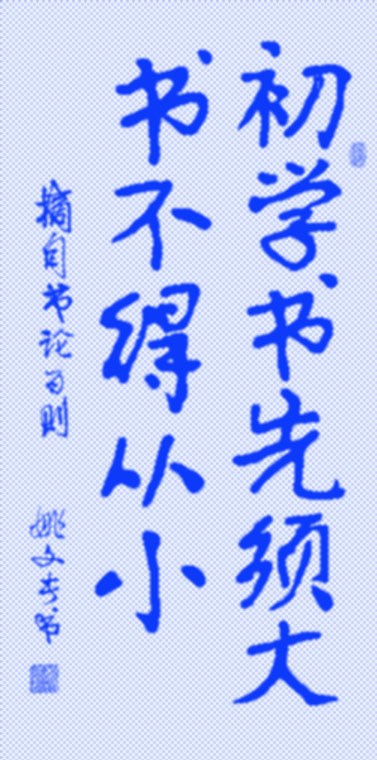 初学书先须大
书不得从小
摘自书论一则
姚文奇书